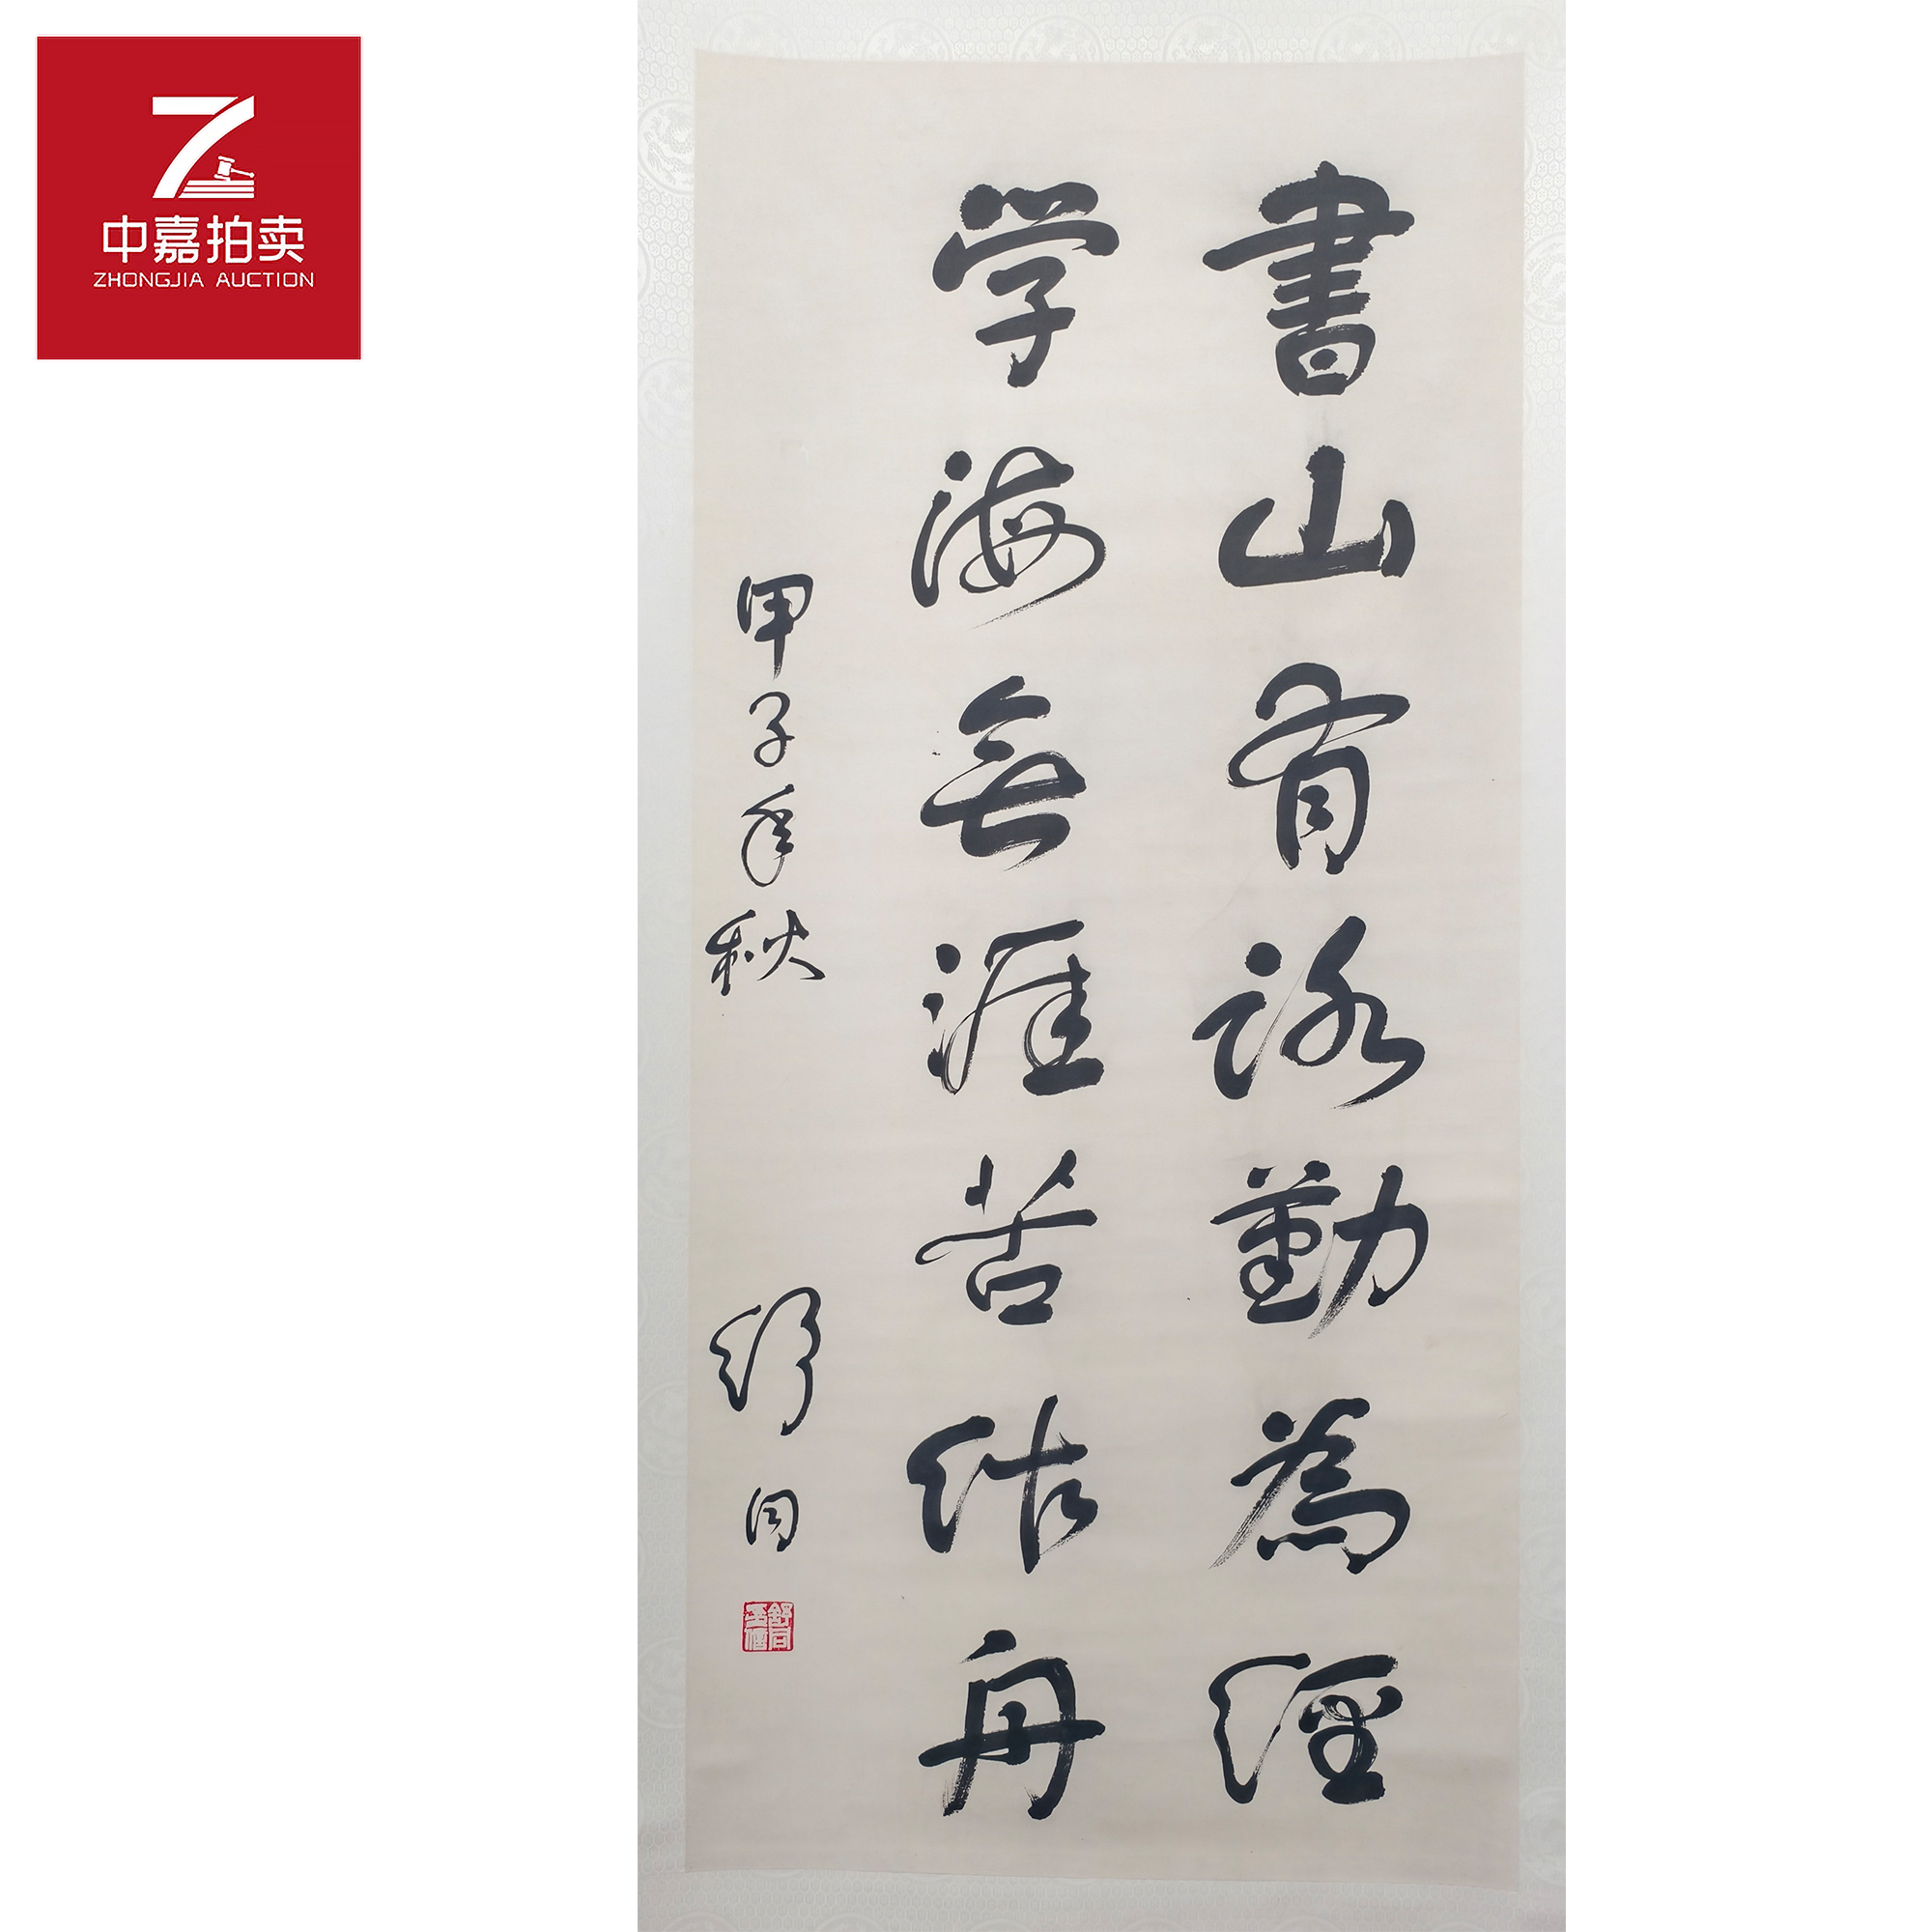 中嘉拍卖
ZHONGJIA AUCTION
書山有路勤為徑
学海無涯苦作舟
甲子年秋
舒同
舒同